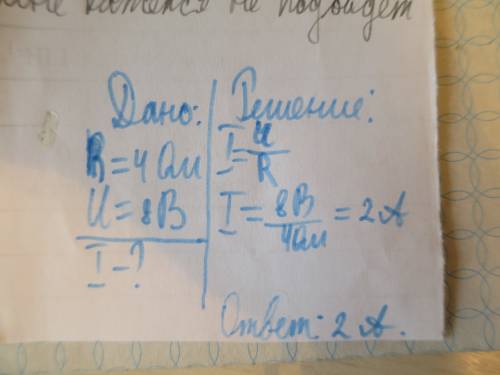 мне кажется не подойдет
Дано:
R = 4 Ом
U = 8В
I - ?
Решение:
I = U/R
I = 8В/4Ом = 2 А
Ответ: 2 А.